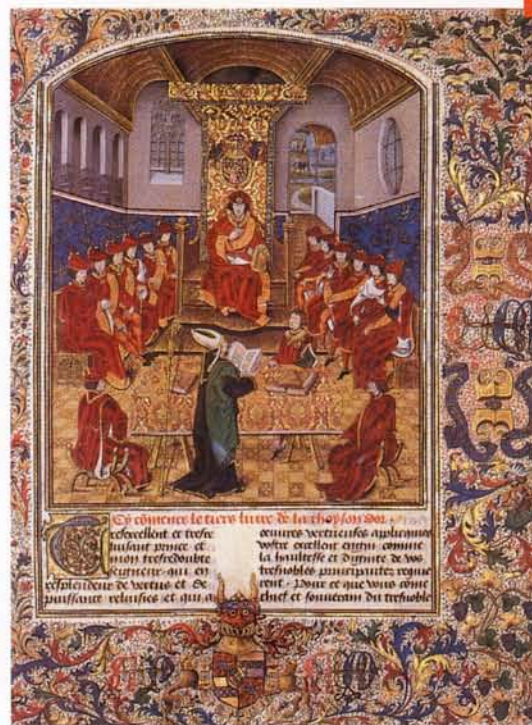 Cy cōmence le tiers liure de la thoyson dor.
Tresexcellent et trespuissant
puissant prince et
mon tresredoubte
seigneur qui en
resplendeur de vertus et de
puissance reluisies et qui a
oeuures vertueuses appliquies
vostre excellent engin comme
la haultesse et dignite de vos
tresnobles principautez requierent
rent. Pour ce que vous cōme
chief et souuerain du tresnoble